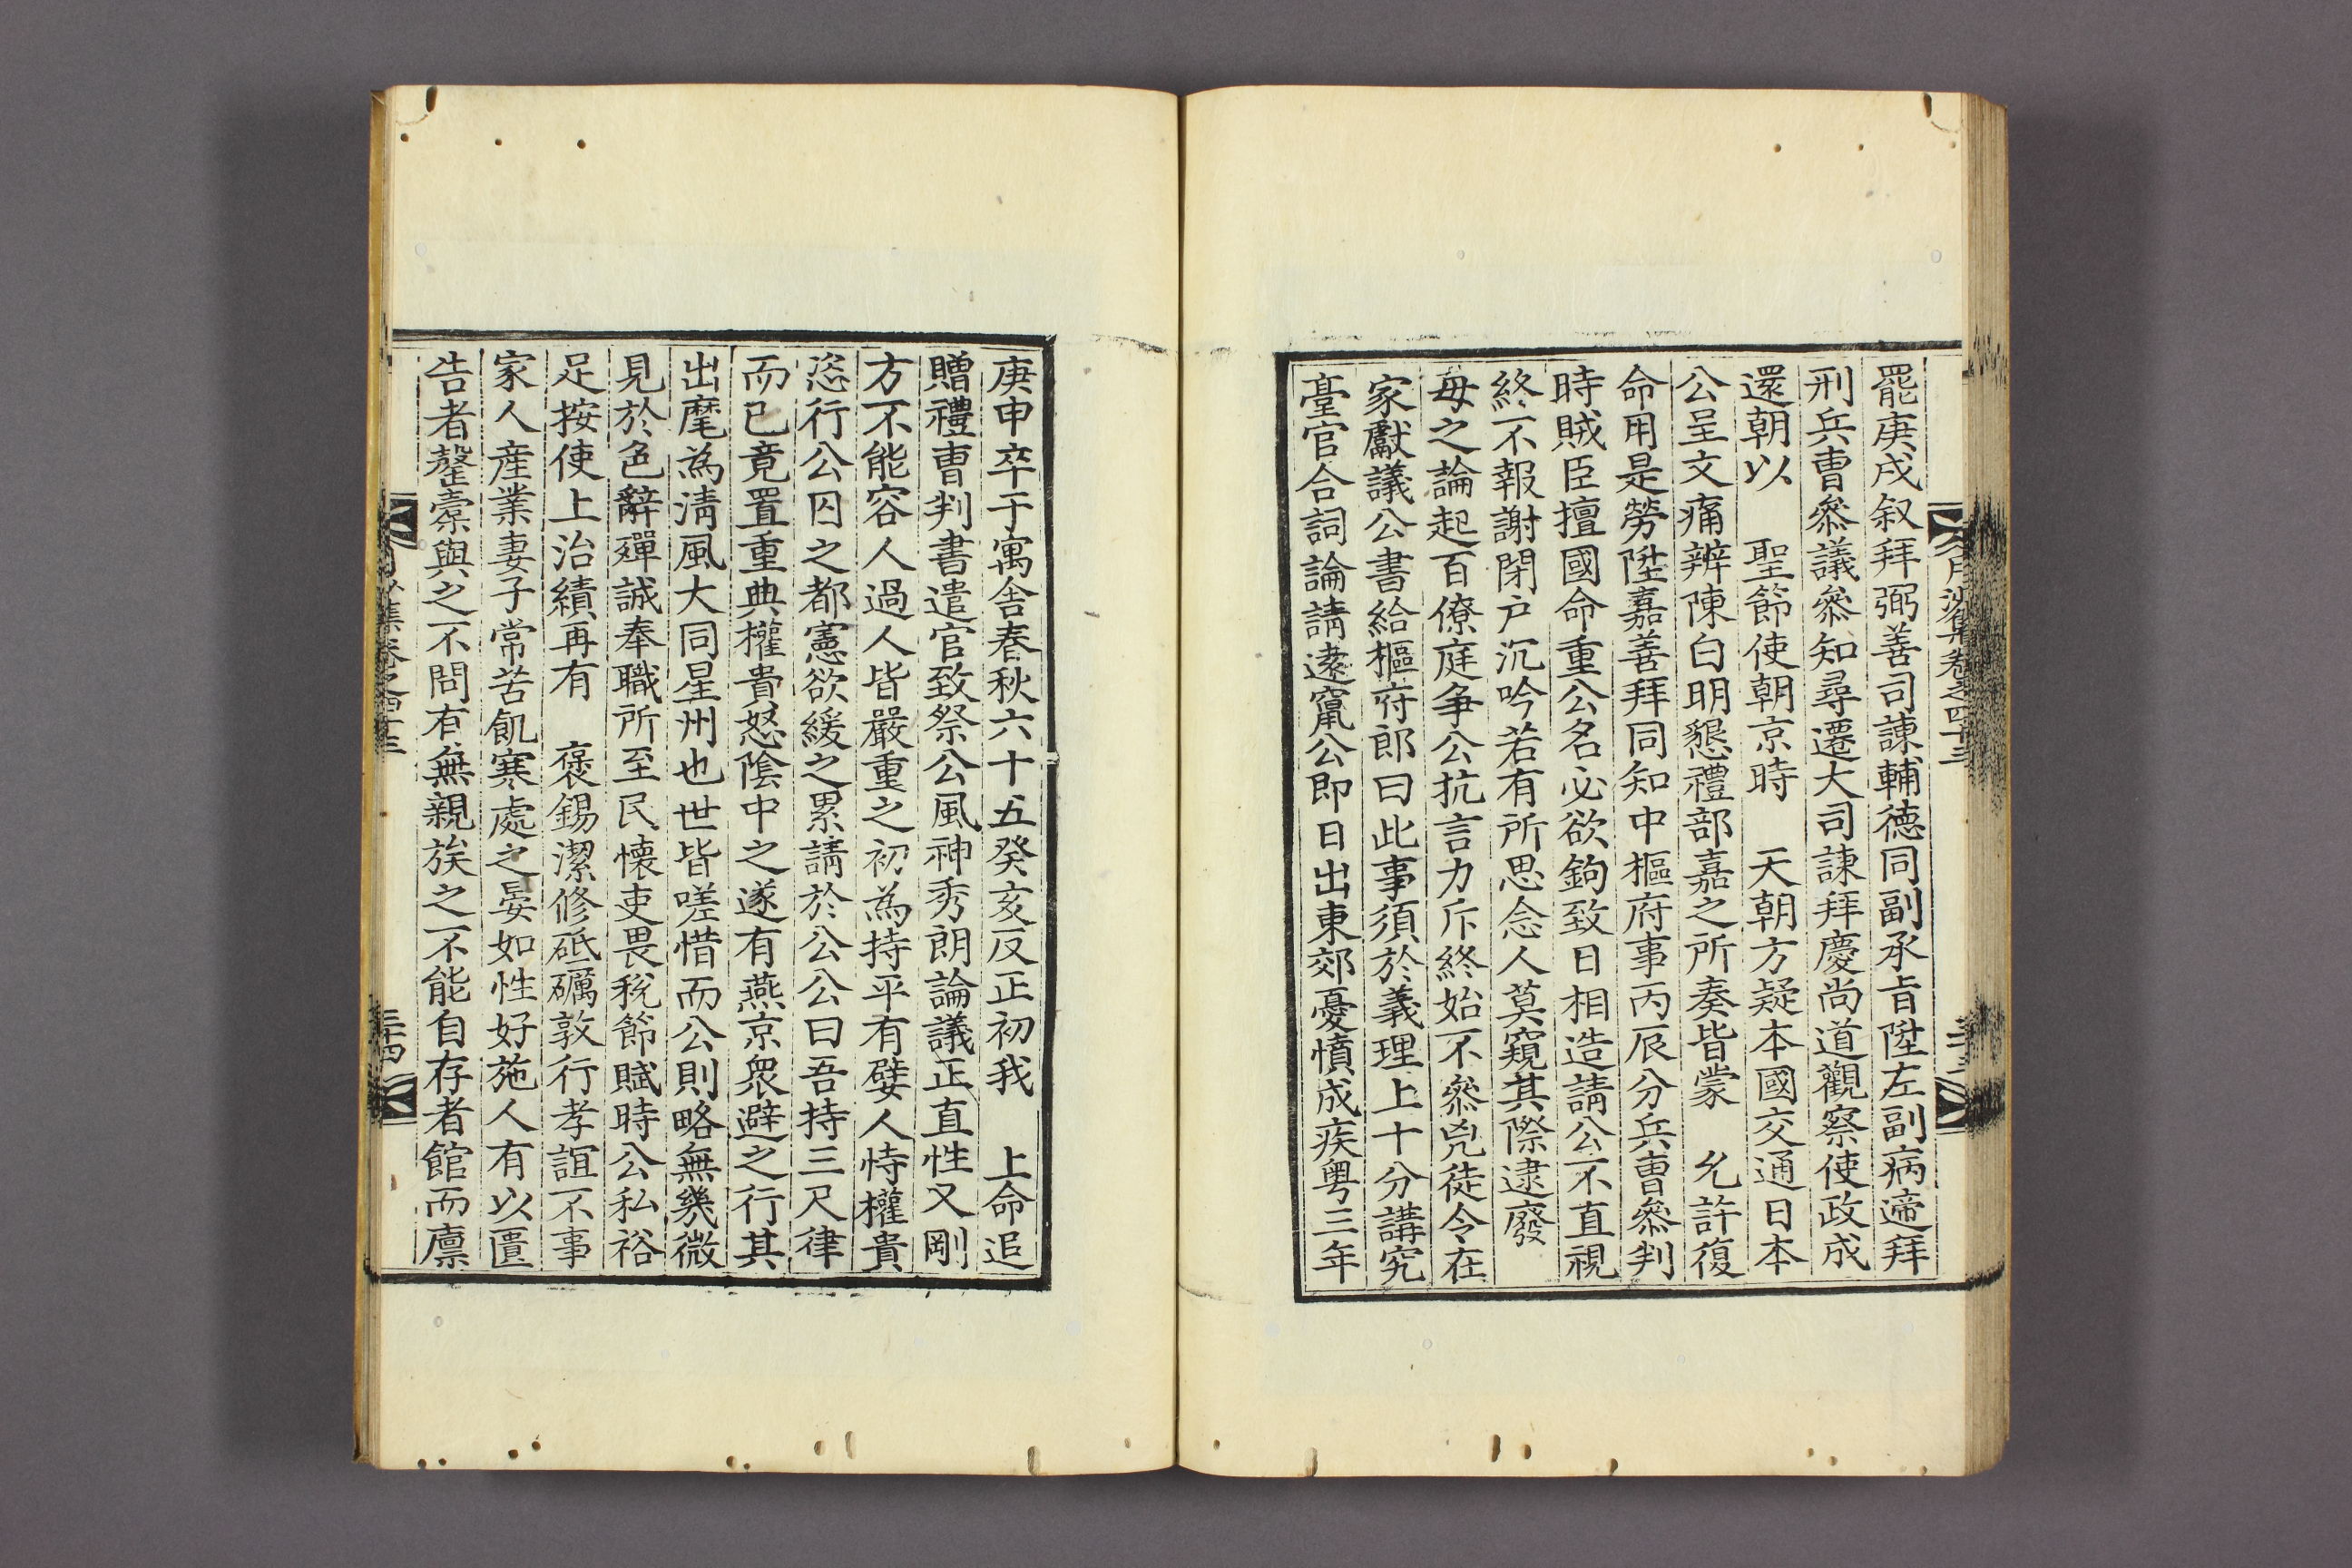 罷庚戌叙拜弼善司諫輔德同副承旨陞左副病遞拜
刑兵曹叅議叅知尋遷大司諫拜慶尚道觀察使政成
還朝以 聖節使朝京時 天朝方疑本國交通日本
公呈文痛辨陳白明懇禮部嘉之所奏皆蒙 允許復
命用是勞陞嘉善拜同知中樞府事丙辰分兵曹叅判
時賊臣擅國命重公名必欲鉤致日相造請公不直視
終不報謝閉户沉吟若有所思念人莫窺其際逮廢
毋之論起百僚庭争公抗言力斥終始不叅兇徒令在
家獻議公書給樞府郎曰此事須於義理上十分講究
臺官合詞論請遠竄公即日出東郊憂憤成疾粤三年
月沙集卷之四十三
庚申卒于寓舍春秋六十五癸亥反正初我 上命追
贈禮曹判書遣官致祭公風神秀朗論議正直性又剛
方不能容人過人皆嚴重之初為持平有嬖人恃權貴
恣行公囚之都憲欲緩之累請於公公曰吾持三尺律
而已竟置重典權貴怒陰中之遂有燕京衆避之行其
出麾為清風大同星州也世皆嗟惜而公則略無幾微
見於色辭殫誠奉職所至民懷吏畏稅節賦時公私裕
足按使上治績再有 褒錫潔修砥礪敦行孝誼不事
家人産業妻子常苦飢寒處之晏如性好施人有以匱
告者罄槖與之不問有無親族之不能自存者館而廪
集卷之四十三
三十四